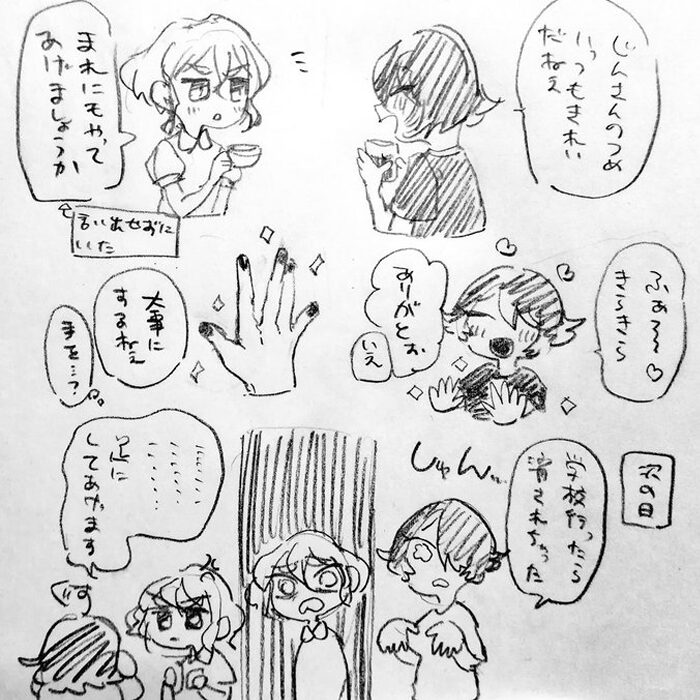 じんさんのつめ
いっつもきれい
だねえ
まれにもやって
あげましょうか
言い出せずに
いた
ふぁ〜〜♡
きらきら
ありがとぉ
いえ
大事に
するねぇ
手を…?
次の日
学校行ったら
消されちゃった
しゅん…
足に
してあげます
ぐす